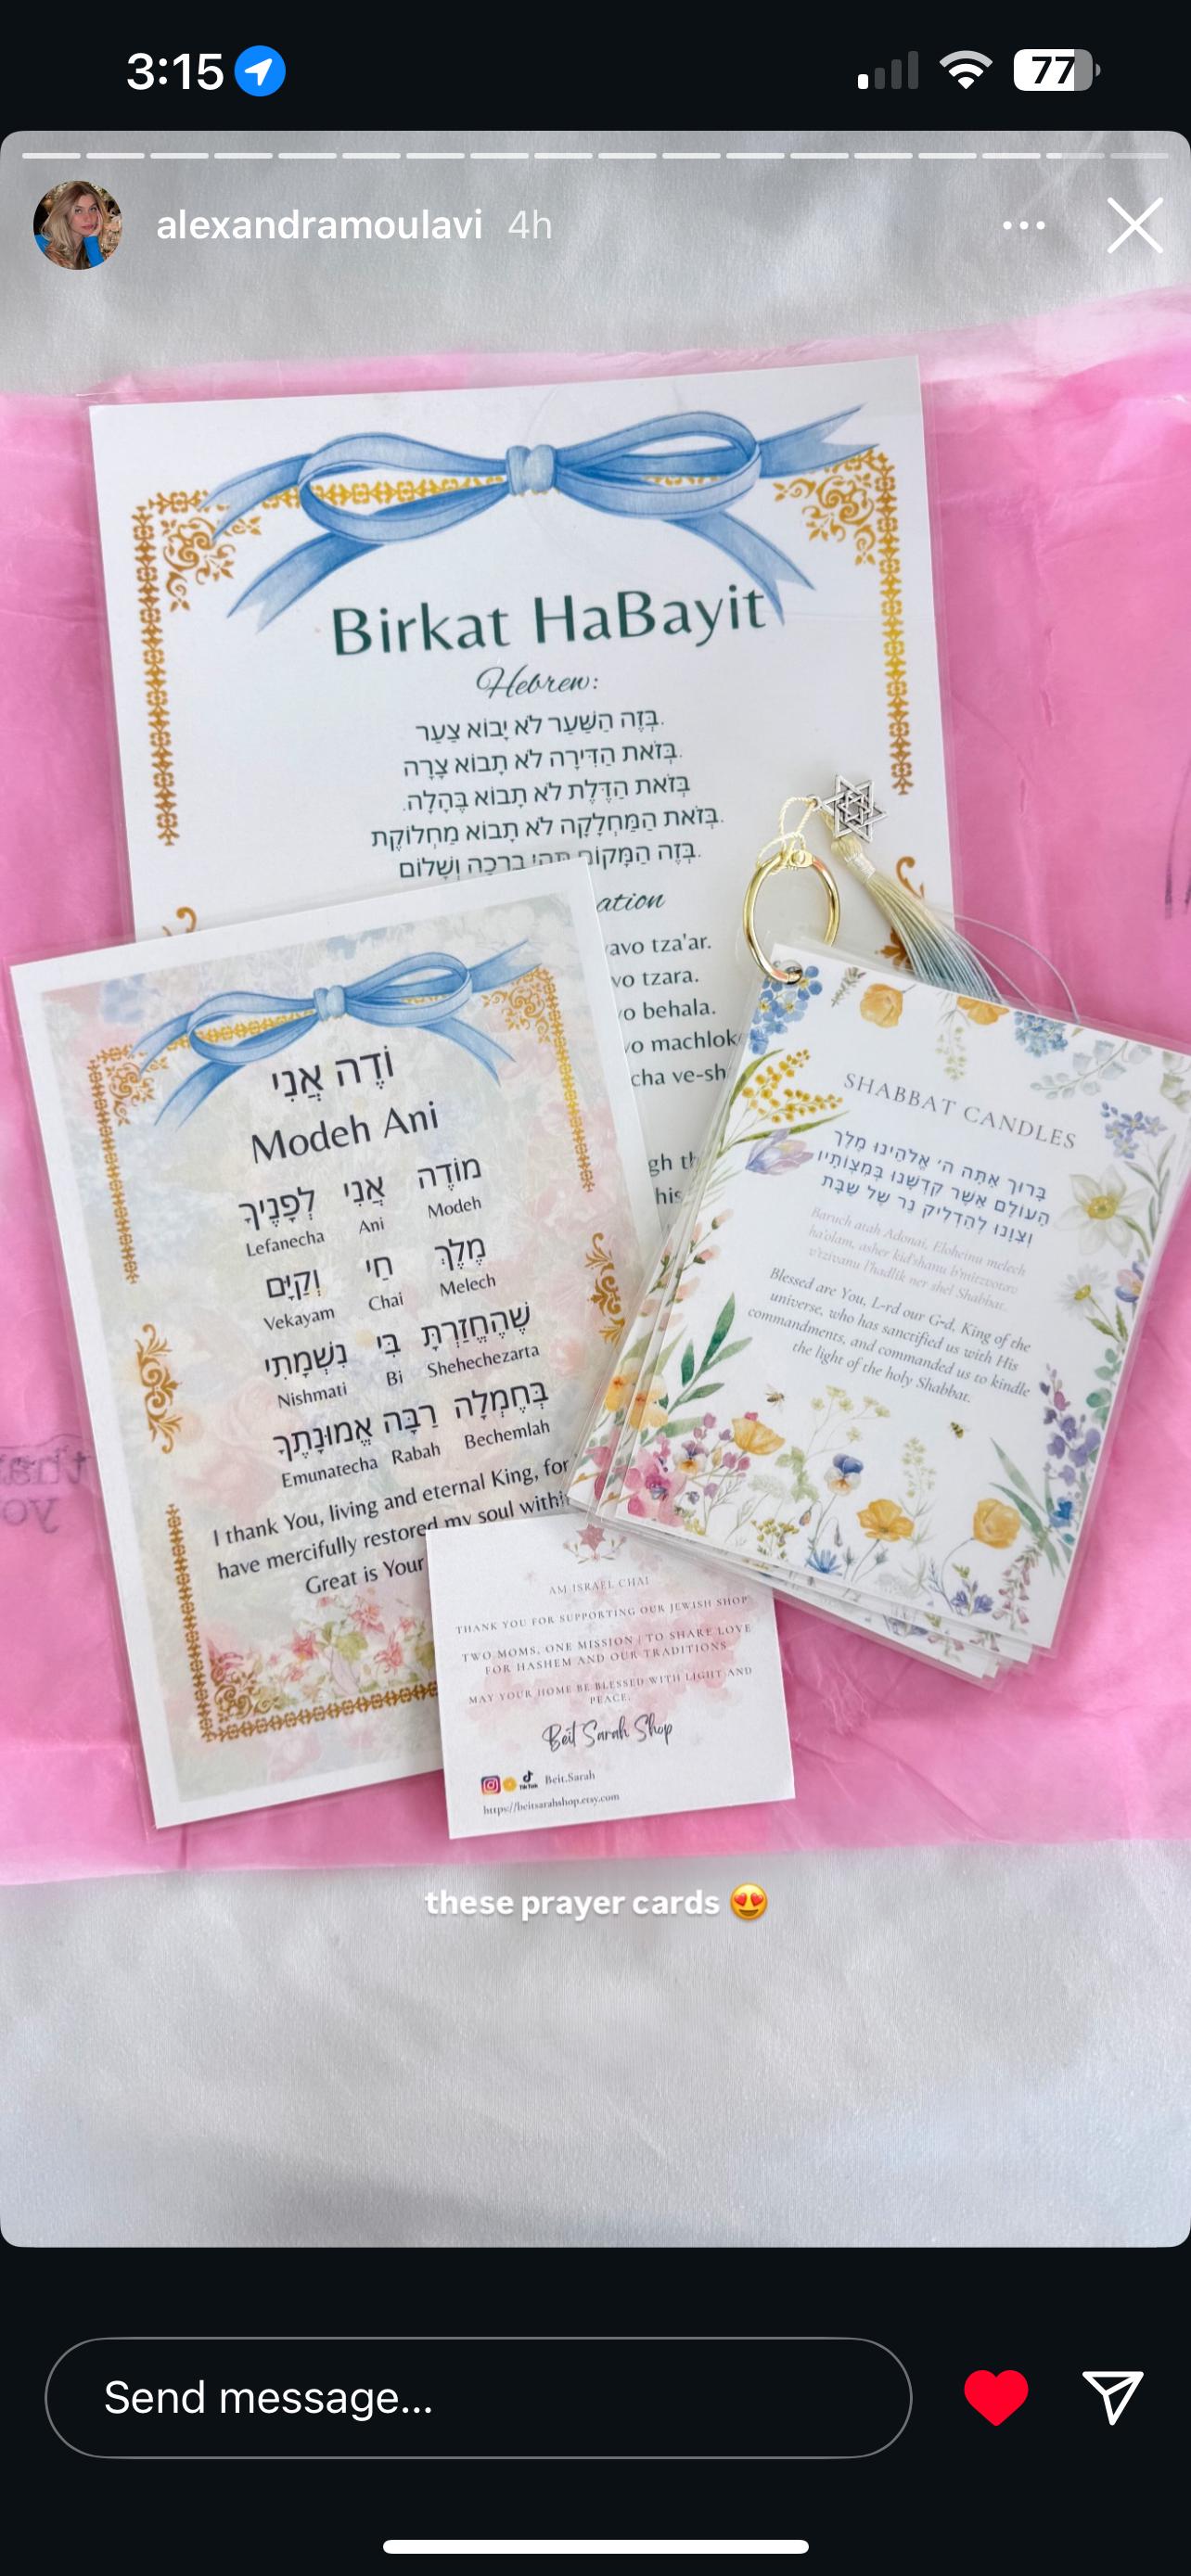 3:15
77
alexandramoulavi 4h
Birkat HaBayit
Hebrew:
בְּזֶה הַשַּׁעַר לֹא יָבוֹא צַעַר.
בְּזֹאת הַדִּירָה לֹא תָבוֹא צָרָה.
בְּזֹאת הַדֶּלֶת לֹא תָבוֹא בֶּהָלָה.
בְּזֹאת הַמַּחְלָקָה לֹא תָבוֹא מַחְלוֹקֶת.
בְּזֶה הַמָּקוֹם תְּהִי בְרָכָה וְשָׁלוֹם.
ation
avo tza'ar.
vo tzara.
vo behala.
vo machlok
cha ve-sh
gh th
his
וֹדֶה אֲנִי
Modeh Ani
מוֹדֶה אֲנִי לְפָנֶיךָ
Lefanecha Ani Modeh
מֶלֶךְ חַי וְקַיָּם
Vekayam Chai Melech
שֶׁהֶחֱזַרְתָּ בִּי נִשְׁמָתִי
Nishmati Bi Shehechezarta
בְּחֶמְלָה רַבָּה אֱמוּנָתֶךָ
Emunatecha Rabah Bechemlah
I thank You, living and eternal King, for
have mercifully restored my soul within
Great is Your
SHABBAT CANDLES
בָּרוּךְ אַתָּה ה' אֱלֹהֵינוּ מֶלֶךְ
הָעוֹלָם אֲשֶׁר קִדְּשָׁנוּ בְּמִצְוֹתָיו
וְצִוָּנוּ לְהַדְלִיק נֵר שֶׁל שַׁבָּת
Baruch atah Adonai, Eloheinu melech
ha'olam, asher kid'shanu b'mitzvotav
v'tzivanu l'hadlik ner shel Shabbat.
Blessed are You, L-rd our G-d, King of the
universe, who has sanctified us with His
commandments, and commanded us to kindle
the light of the holy Shabbat.
AM ISRAEL CHAI
THANK YOU FOR SUPPORTING OUR JEWISH SHOP
TWO MOMS, ONE MISSION | TO SHARE LOVE
FOR HASHEM AND OUR TRADITIONS
MAY YOUR HOME BE BLESSED WITH LIGHT AND
PEACE.
Beit Sarah Shop
TikTok Beit.Sarah
https://beitsarahshop.etsy.com
these prayer cards 😍
Send message...